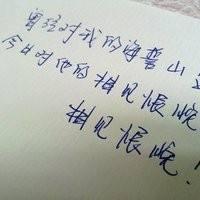 曾经对我的海誓山
今日对他的相见恨晚
相见恨晚！